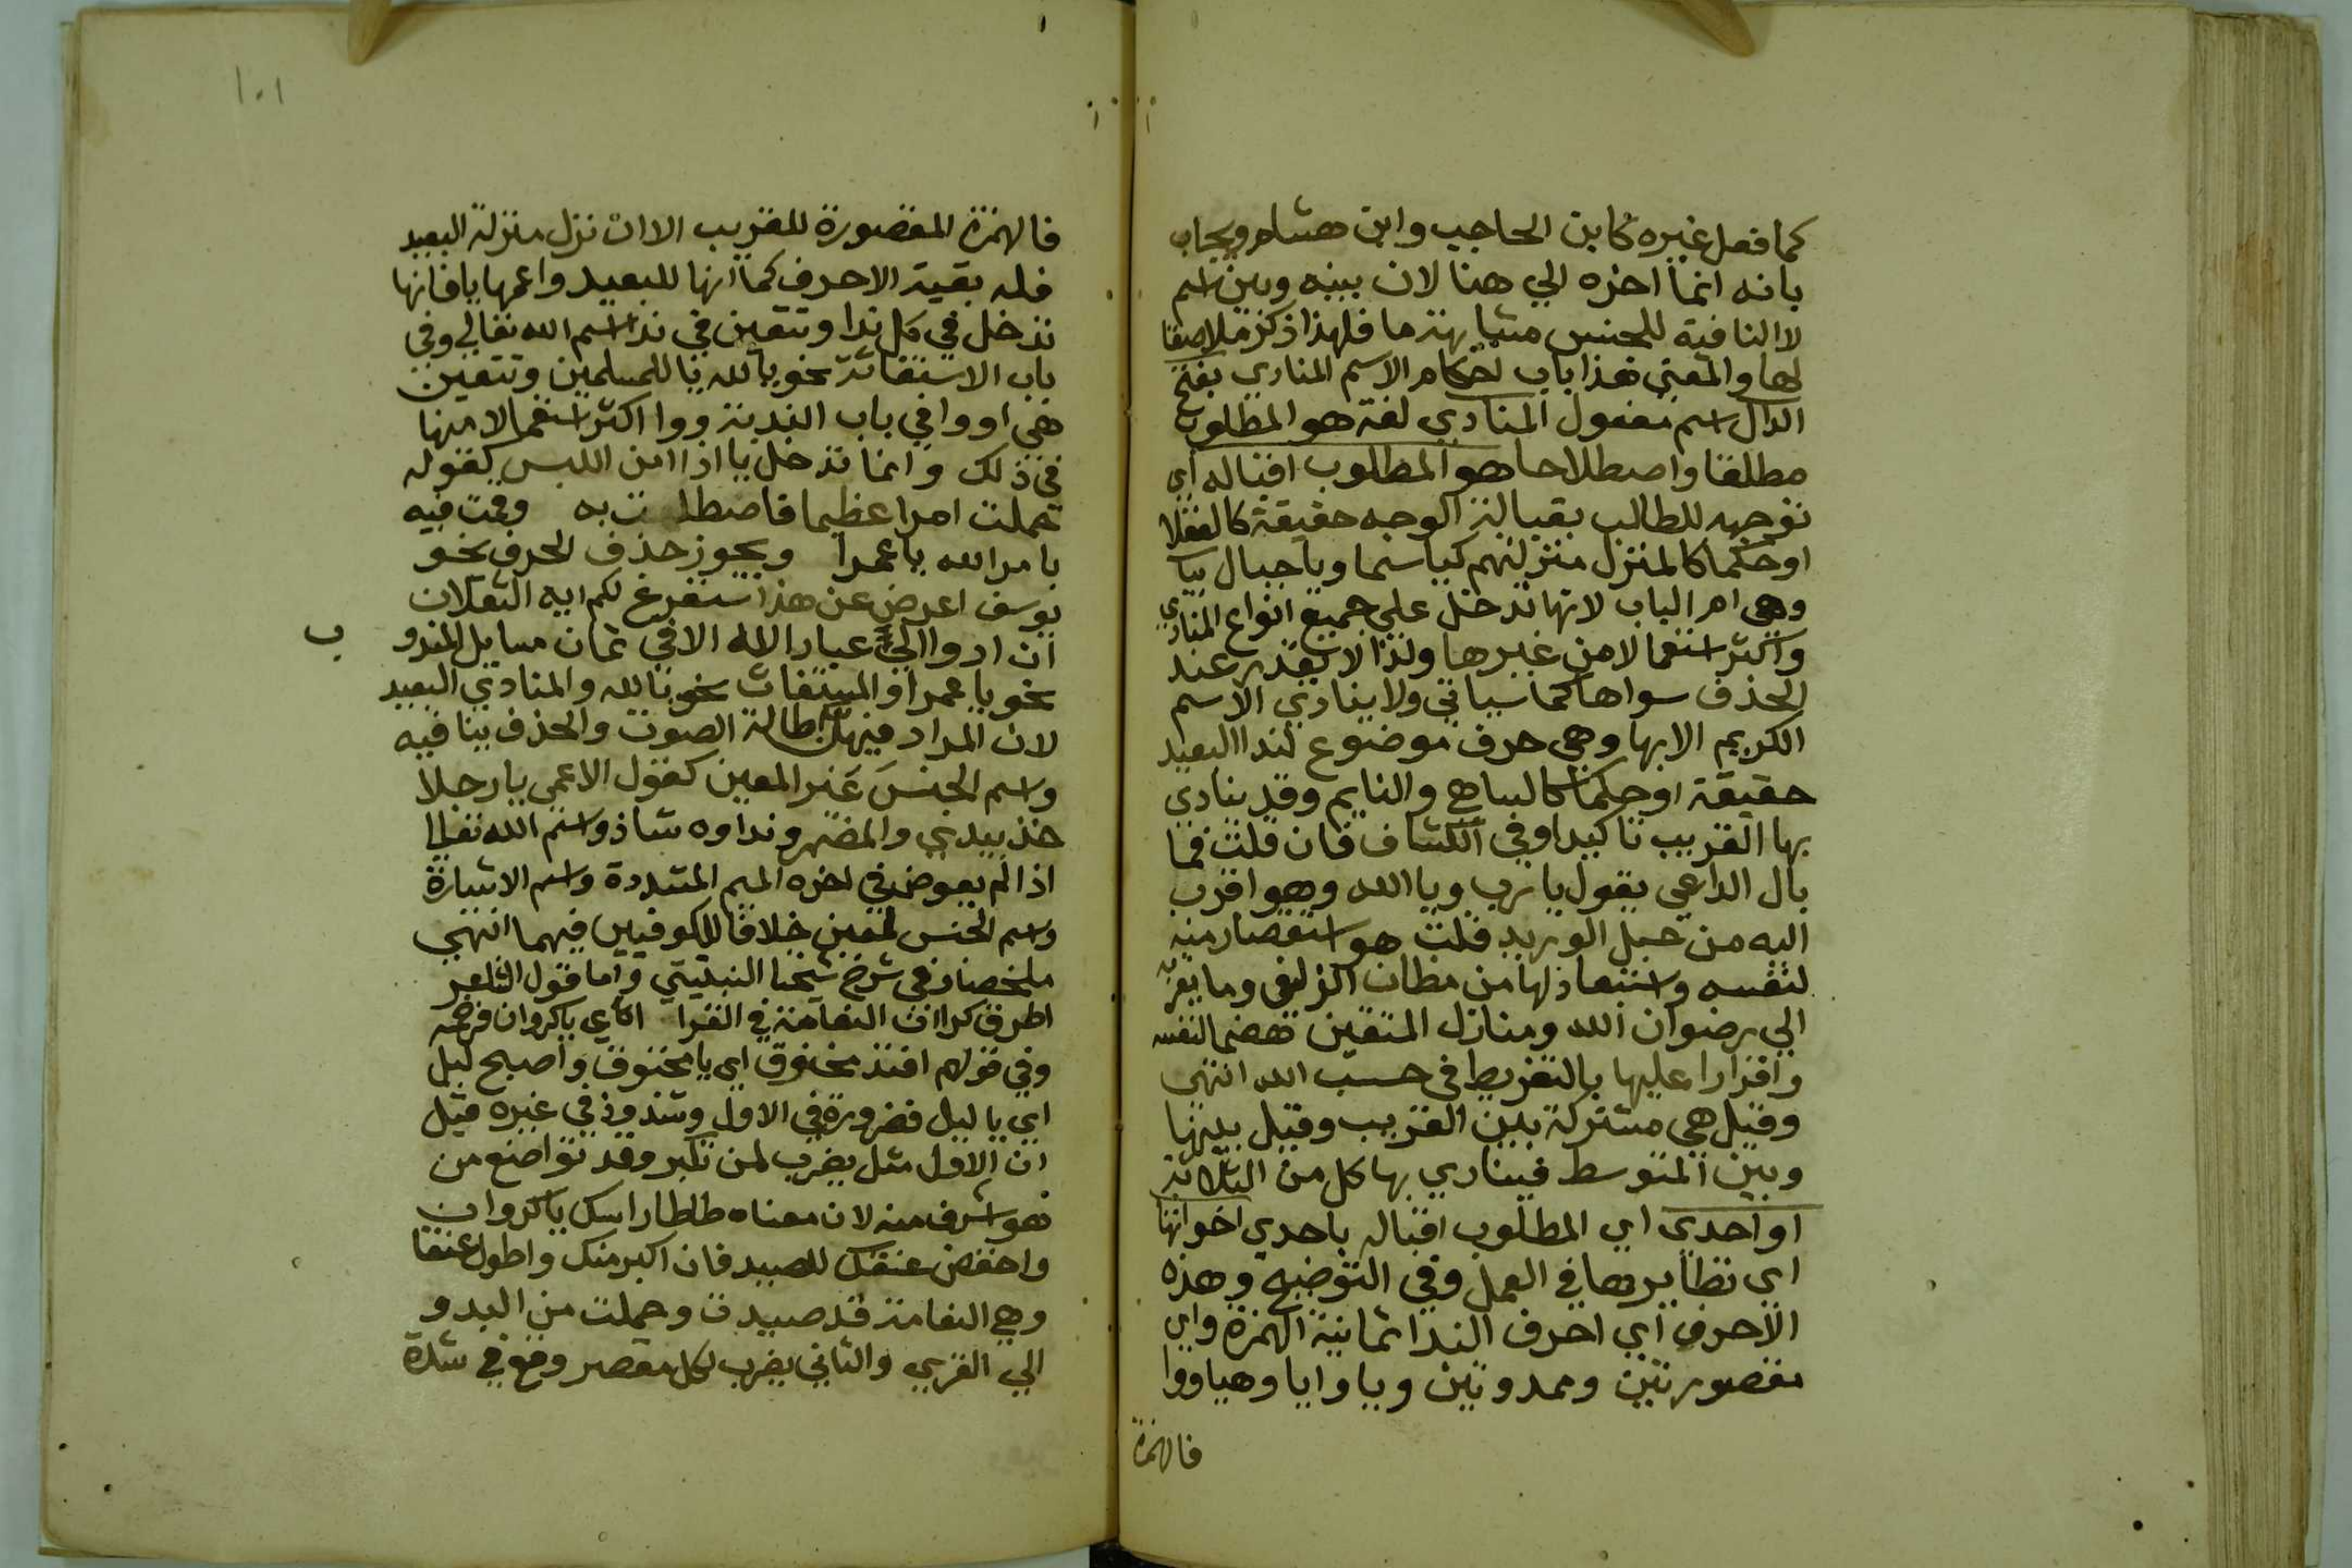 كما فعل غيره كابن الحاجب وابن هشام ويجاب
بانه انما اخره الي هنا لان بينه وبين اسم
لا النافية للجنس مشابهة ما فلهذا ذكره ملاصقا
لها والمعني هذا باب احكام الاسم المنادي بفتح
الدال اسم مفعول المنادي لغة هو المطلوب
مطلقا واصطلاحا هو المطلوب اقباله اي
توجهه للطالب بقبالة الوجه حقيقة كالعقلا
او حكما كالمنزل منزلتهم كياسما وياجبال بيا
وهي ام الباب لانها تدخل علي جميع انواع المنادي
واكثر استعمالا من غيرها ولذا لا يقدر عند
الحذف سواها كما سياتي ولا ينادي الاسم
الكريم الا بها وهي حرف موضوع لندا البعيد
حقيقة او حكما كالساهي والنايم وقد ينادي
بها القريب تاكيدا وفي الكشاف فان قلت فما
بال الداعي يقول يا رب ويا الله وهو اقرب
اليه من حبل الوريد قلت هو استقصار منه
لنفسه واستبعاد لها من مظان الزلفي وما يقربه
الي رضوان الله ومنازل المتقين هضما لنفسه
واقرارا عليها بالتفريط في حسب الله انتهي
وقيل هي مشتركة بين القريب وقيل بينها
وبين المتوسط فينادي بها كل من الثلاثة
او احدي اي المطلوب اقباله باحدي اخواتها
اي نظايرها في العمل وفي التوضيح وهذه
الاحرف اي احرف الندا ثمانية الهمزة واي
مقصورتين وممدودتين ويا وايا وهيا ووا
فالهمزة
١٠١
فالهمزة المقصورة للقريب الا ان نزل منزلة البعيد
فله بقية الاحرف كما انها للبعيد واعمها يا فانها
تدخل في كل ندا وتتعين في ندا اسم الله تعالي وفي
باب الاستغاثة نحو يا لله يا للمسلمين وتتعين
هي او وا في باب الندبة ووا اكثر استعمالا منها
في ذلك وانما تدخل يا اذا امن اللبس كقوله
حملت امرا عظيما فاصطبرت به وقمت فيه
بامر الله يا عمرا ويجوز حذف الحرف نحو
يوسف اعرض عن هذا سنفرغ لكم ايه الثقلان
ان ادوا الي عباد الله الا في ثمان مسايل المندو
ب
نحو يا عمرا والمستغاث نحو يا لله والمنادي البعيد
لان المراد فيهن اطالة الصوت والحذف ينافيه
واسم الجنس غير المعين كقول الاعمي يا رجلا
خذ بيدي والمضمر ونداوه شاذ واسم الله تعالي
اذا لم يعوض في اخره الميم المشددة واسم الاشارة
واسم الجنس لمعين خلافا للكوفيين فيهما انتهي
ملخصا وفي شرح شيخنا النبتيتي واما قول الشاعر
اطرق كرا ان النعامة في القرا اي يا كروان فرخمه
وفي قولهم افتد مخنوق اي يا مخنوق واصبح ليل
اي يا ليل فضرورة في الاول وشذوذ في غيره قيل
ان الاول مثل يضرب لمن تكبر وقد تواضع من
هو اشرف منه لان معناه طاطا راسك يا كروان
واخفض عنقك للصيد فان اكبر منك واطول عنقا
وهي النعامة قد صيدت وحملت من البدو
الي القري والثاني يضرب لكل مقصر وقع في شدة